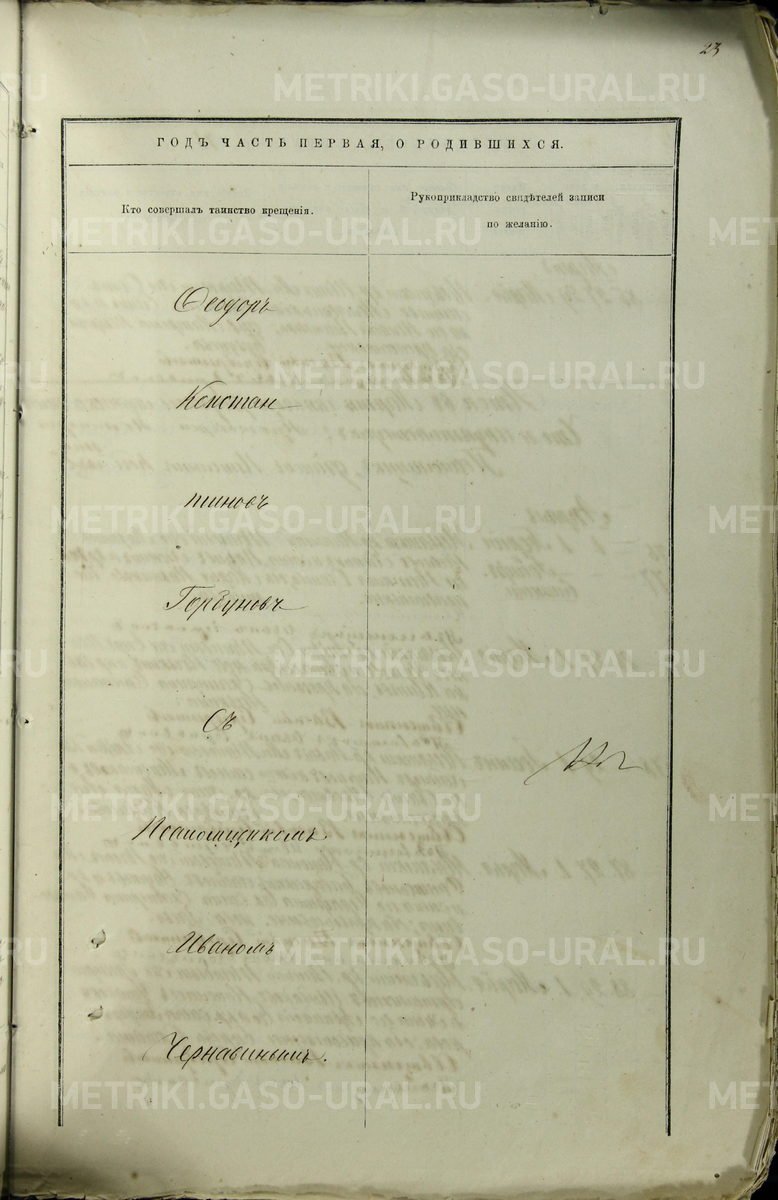 23
ГОДЪ ЧАСТЬ ПЕРВАЯ, О РОДИВШИХСЯ.
Кто совершалъ таинство крещенія.
Рукоприкладство свидѣтелей записи
по желанію.
Ѳеодоръ
Констан
тиновъ
Горбуновъ
Съ
Псаломщикомъ
Иваномъ
Чернавинымъ.
METRIKI.GASO-URAL.RU